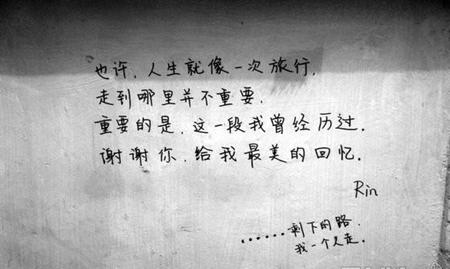 也许，人生就像一次旅行，
走到哪里并不重要．
重要的是，这一段我曾经历过．
谢谢你，给我最美的回忆．
Rin
……剩下的路．
我一个人走．